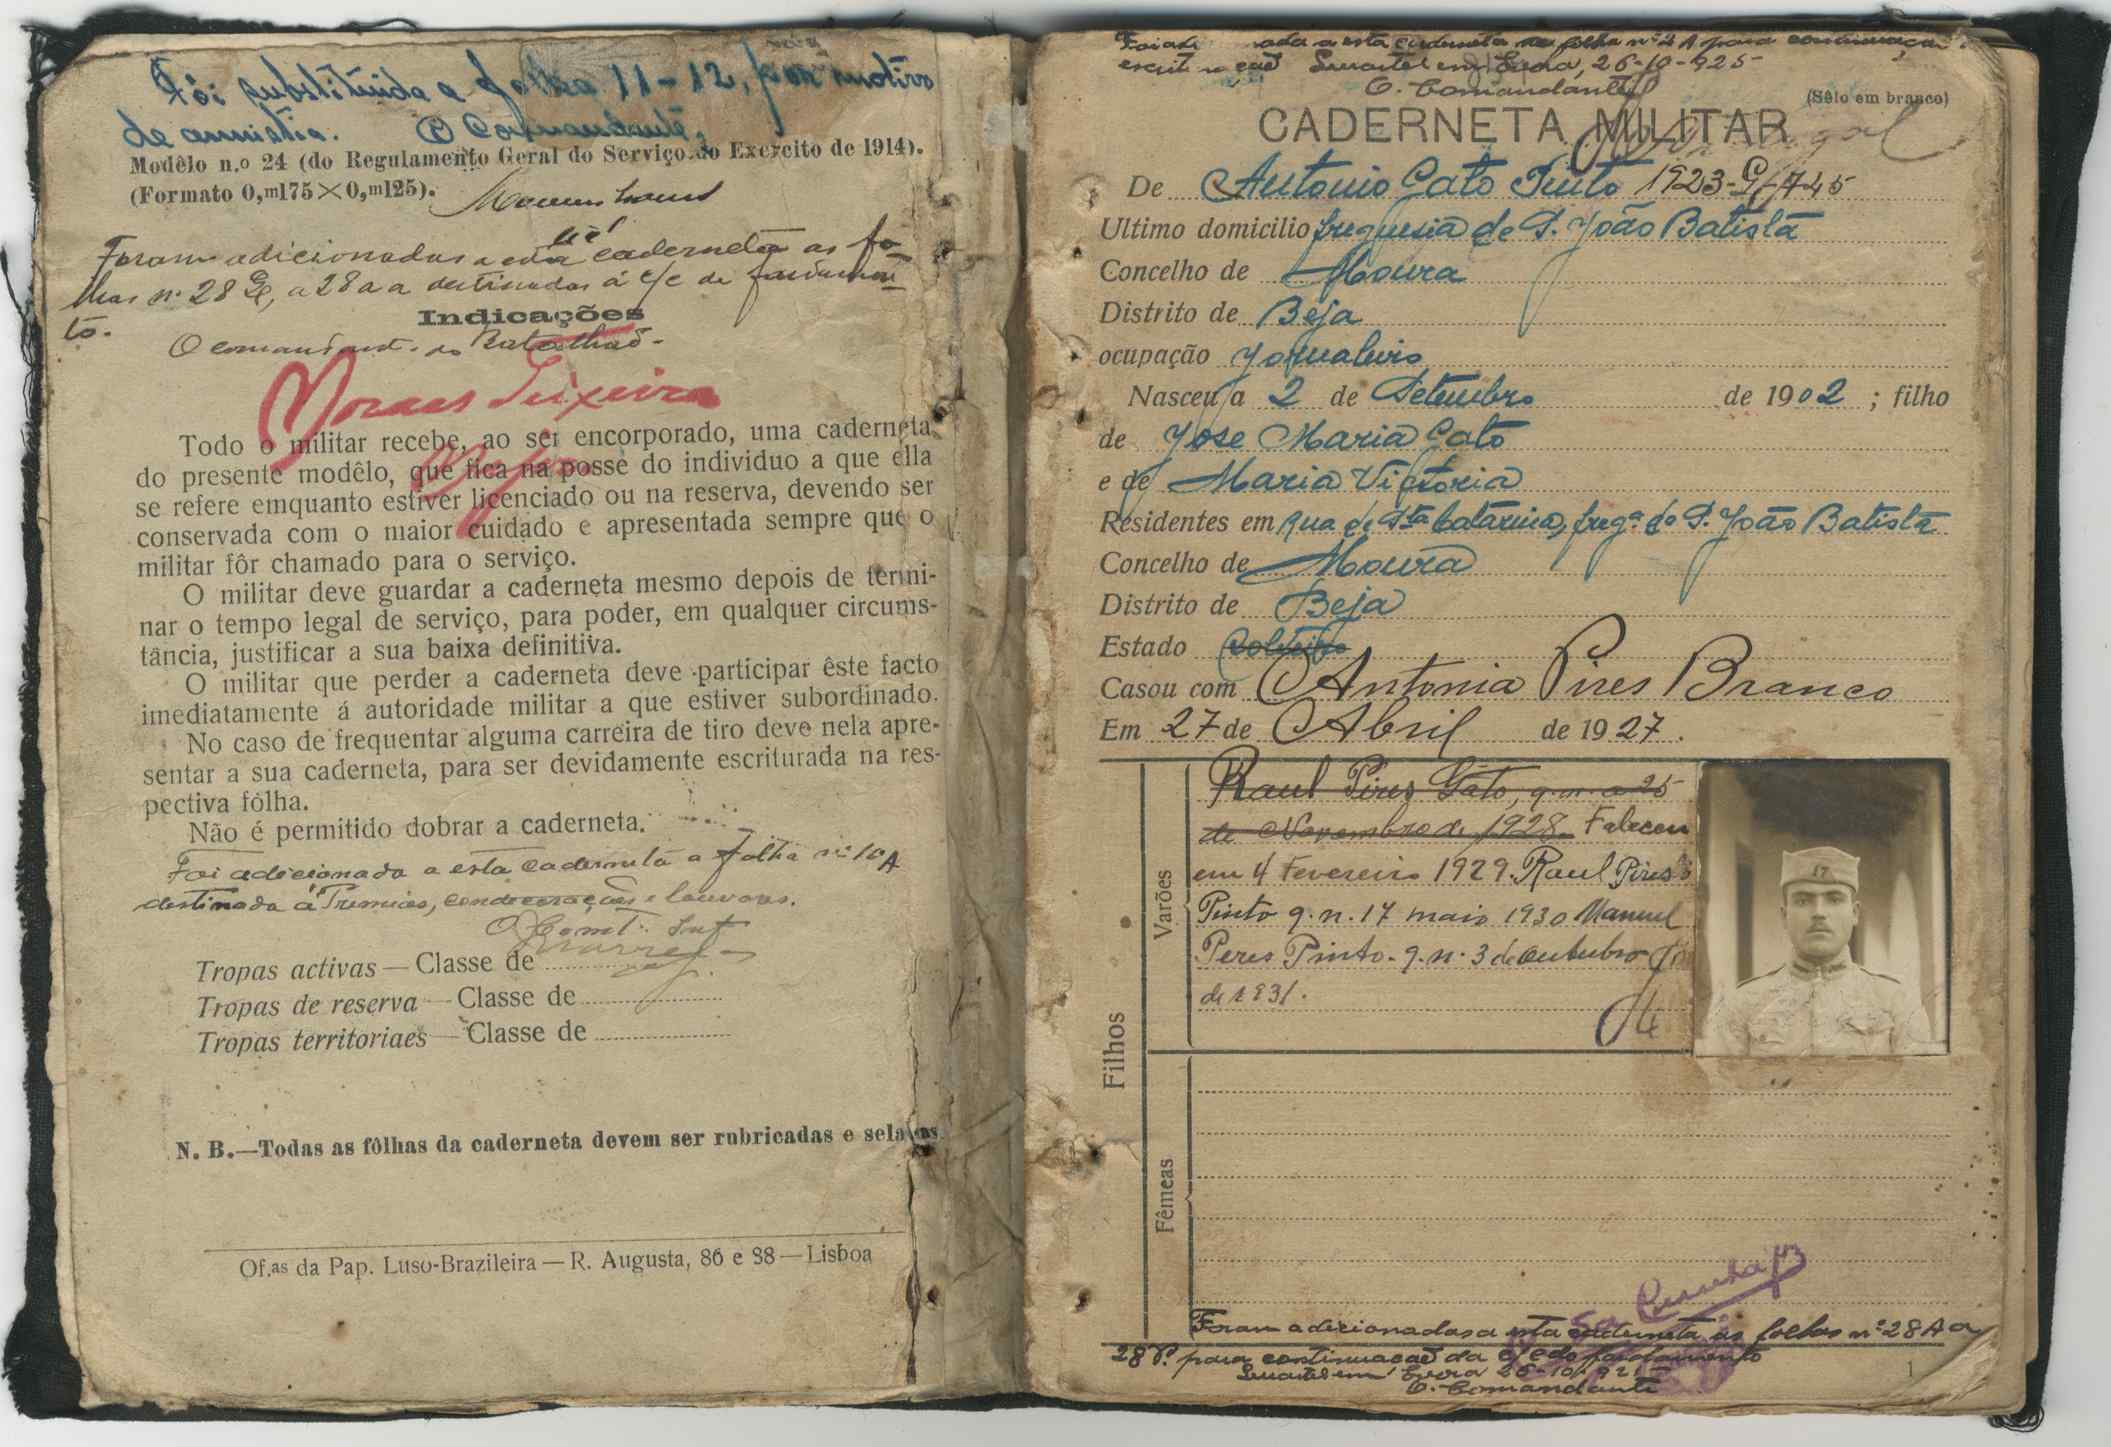 Foi substituida a folha 11-12, por motivo
de amnistia. O Comandante,
Modêlo n.o 24 (do Regulamento Geral do Serviço do Exercito de 1914).
(Formato 0,m175×0,m125).
Foram adicionadas a esta caderneta as fo-
lhas nº 28 a 28 a a destinadas á c/c de fardamen-
to.
Indicações
O comandante do Batalhão
Moraes Teixeira
Todo o militar recebe, ao ser encorporado, uma caderneta
do presente modêlo, que fica na posse do individuo a que ella
se refere emquanto estiver licenciado ou na reserva, devendo ser
conservada com o maior cuidado e apresentada sempre que o
militar fôr chamado para o serviço.
O militar deve guardar a caderneta mesmo depois de termi-
nar o tempo legal de serviço, para poder, em qualquer circums-
tância, justificar a sua baixa definitiva.
O militar que perder a caderneta deve participar êste facto
imediatamente á autoridade militar a que estiver subordinado.
No caso de frequentar alguma carreira de tiro deve nela apre-
sentar a sua caderneta, para ser devidamente escriturada na res-
pectiva fôlha.
Não é permitido dobrar a caderneta.
Foi adicionada a esta caderneta a folha nº 10 A
destinada a Premios, condecorações e louvores.
Tropas activas — Classe de
Tropas de reserva — Classe de
Tropas territoriaes — Classe de
N. B.—Todas as fôlhas da caderneta devem ser rubricadas e seladas
Of.as da Pap. Luso-Brazileira — R. Augusta, 86 e 88 — Lisboa
a esta caderneta a folha nº 2 A para continuação
Quartel em Evora, 26-10-925
O. Comandante
(Sêlo em branco)
CADERNETA MILITAR
De Antonio Gato Pinto 1923-G/745
Ultimo domicilio freguesia de S. João Batista
Concelho de Moura
Distrito de Beja
ocupação Jornaleiro
Nasceu a 2 de Setembro de 1902 ; filho
de Jose Maria Gato
e de Maria Victoria
Residentes em Rua de Sta Catarina, freg.a de S. João Batista
Concelho de Moura
Distrito de Beja
Estado Solteiro
Casou com Antonia Pires Branco
Em 27 de Abril de 1927.
Filhos
Varões
Raul Pires Gato, q. n. a 25
de Novembro de 1928. Faleceu
em 4 Fevereiro 1929. Raul Pires
Pinto q. n. 17 maio 1930 Manuel
Peres Pinto - q. n. 3 de Outubro
de 1931.
17
Fêmeas
Foram adicionadas a esta caderneta as folhas nº 28 A a
28 P. para continuação da c/c do fardamento
Quartel em Evora 26-10-925
O. Comandante
1